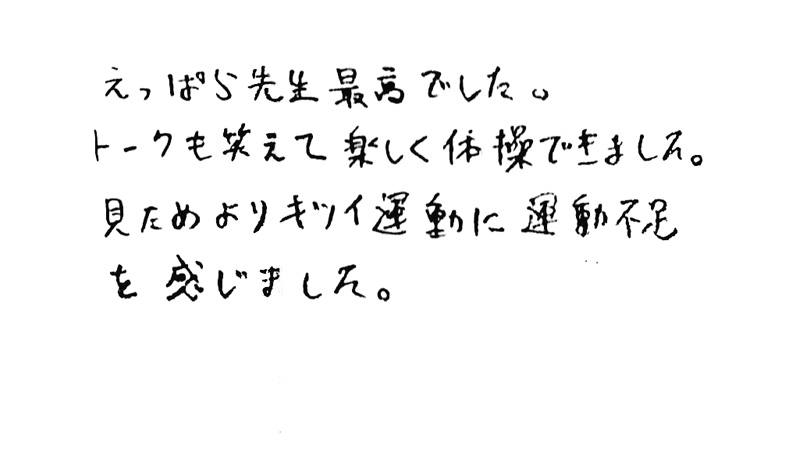 えっぱら先生最高でした。
トークも笑えて楽しく体操できました。
見ためよりキツイ運動に運動不足
を感じました。